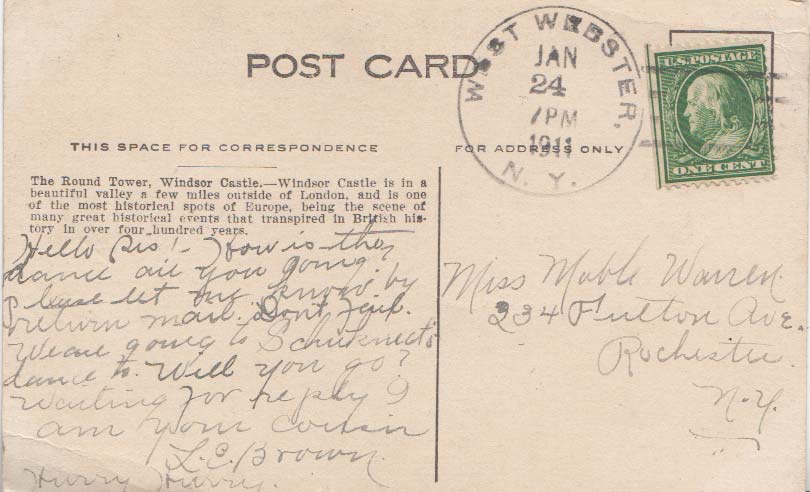 POST CARD
THIS SPACE FOR CORRESPONDENCE
FOR ADDRESS ONLY
WEST WEBSTER, N. Y.
JAN
24
7PM
1911
U.S. POSTAGE
ONE CENT
The Round Tower, Windsor Castle.—Windsor Castle is in a
beautiful valley a few miles outside of London, and is one
of the most historical spots of Europe, being the scene of
many great historical events that transpired in British his-
tory in over four hundred years.
Hello Sis! - How is the
dance are you going.
Please let me know by
return mail. Dont fail.
We are going to Schuknect's
dance to. Will you go?
Waiting for reply I
am your cousin
L.C. Brown.
Hurry Hurry.
Miss Mable Warren
234 Fulton Ave.
Rochester
N.Y.